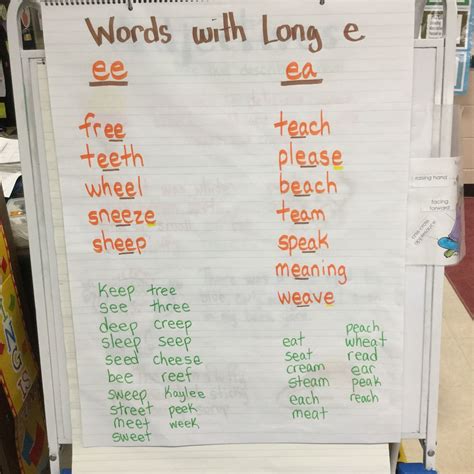 Words with Long e
ee
free
teeth
wheel
sneeze
sheep
Keep tree
see three
deep creep
sleep seep
seed cheese
bee reef
sweep Kaylee
street peek
meet week
sweet
ea
teach
please
beach
team
speak
meaning
weave
eat
seat
cream
steam
each
meat
peach
wheat
read
ear
peak
reach
raising hand
facing
forward